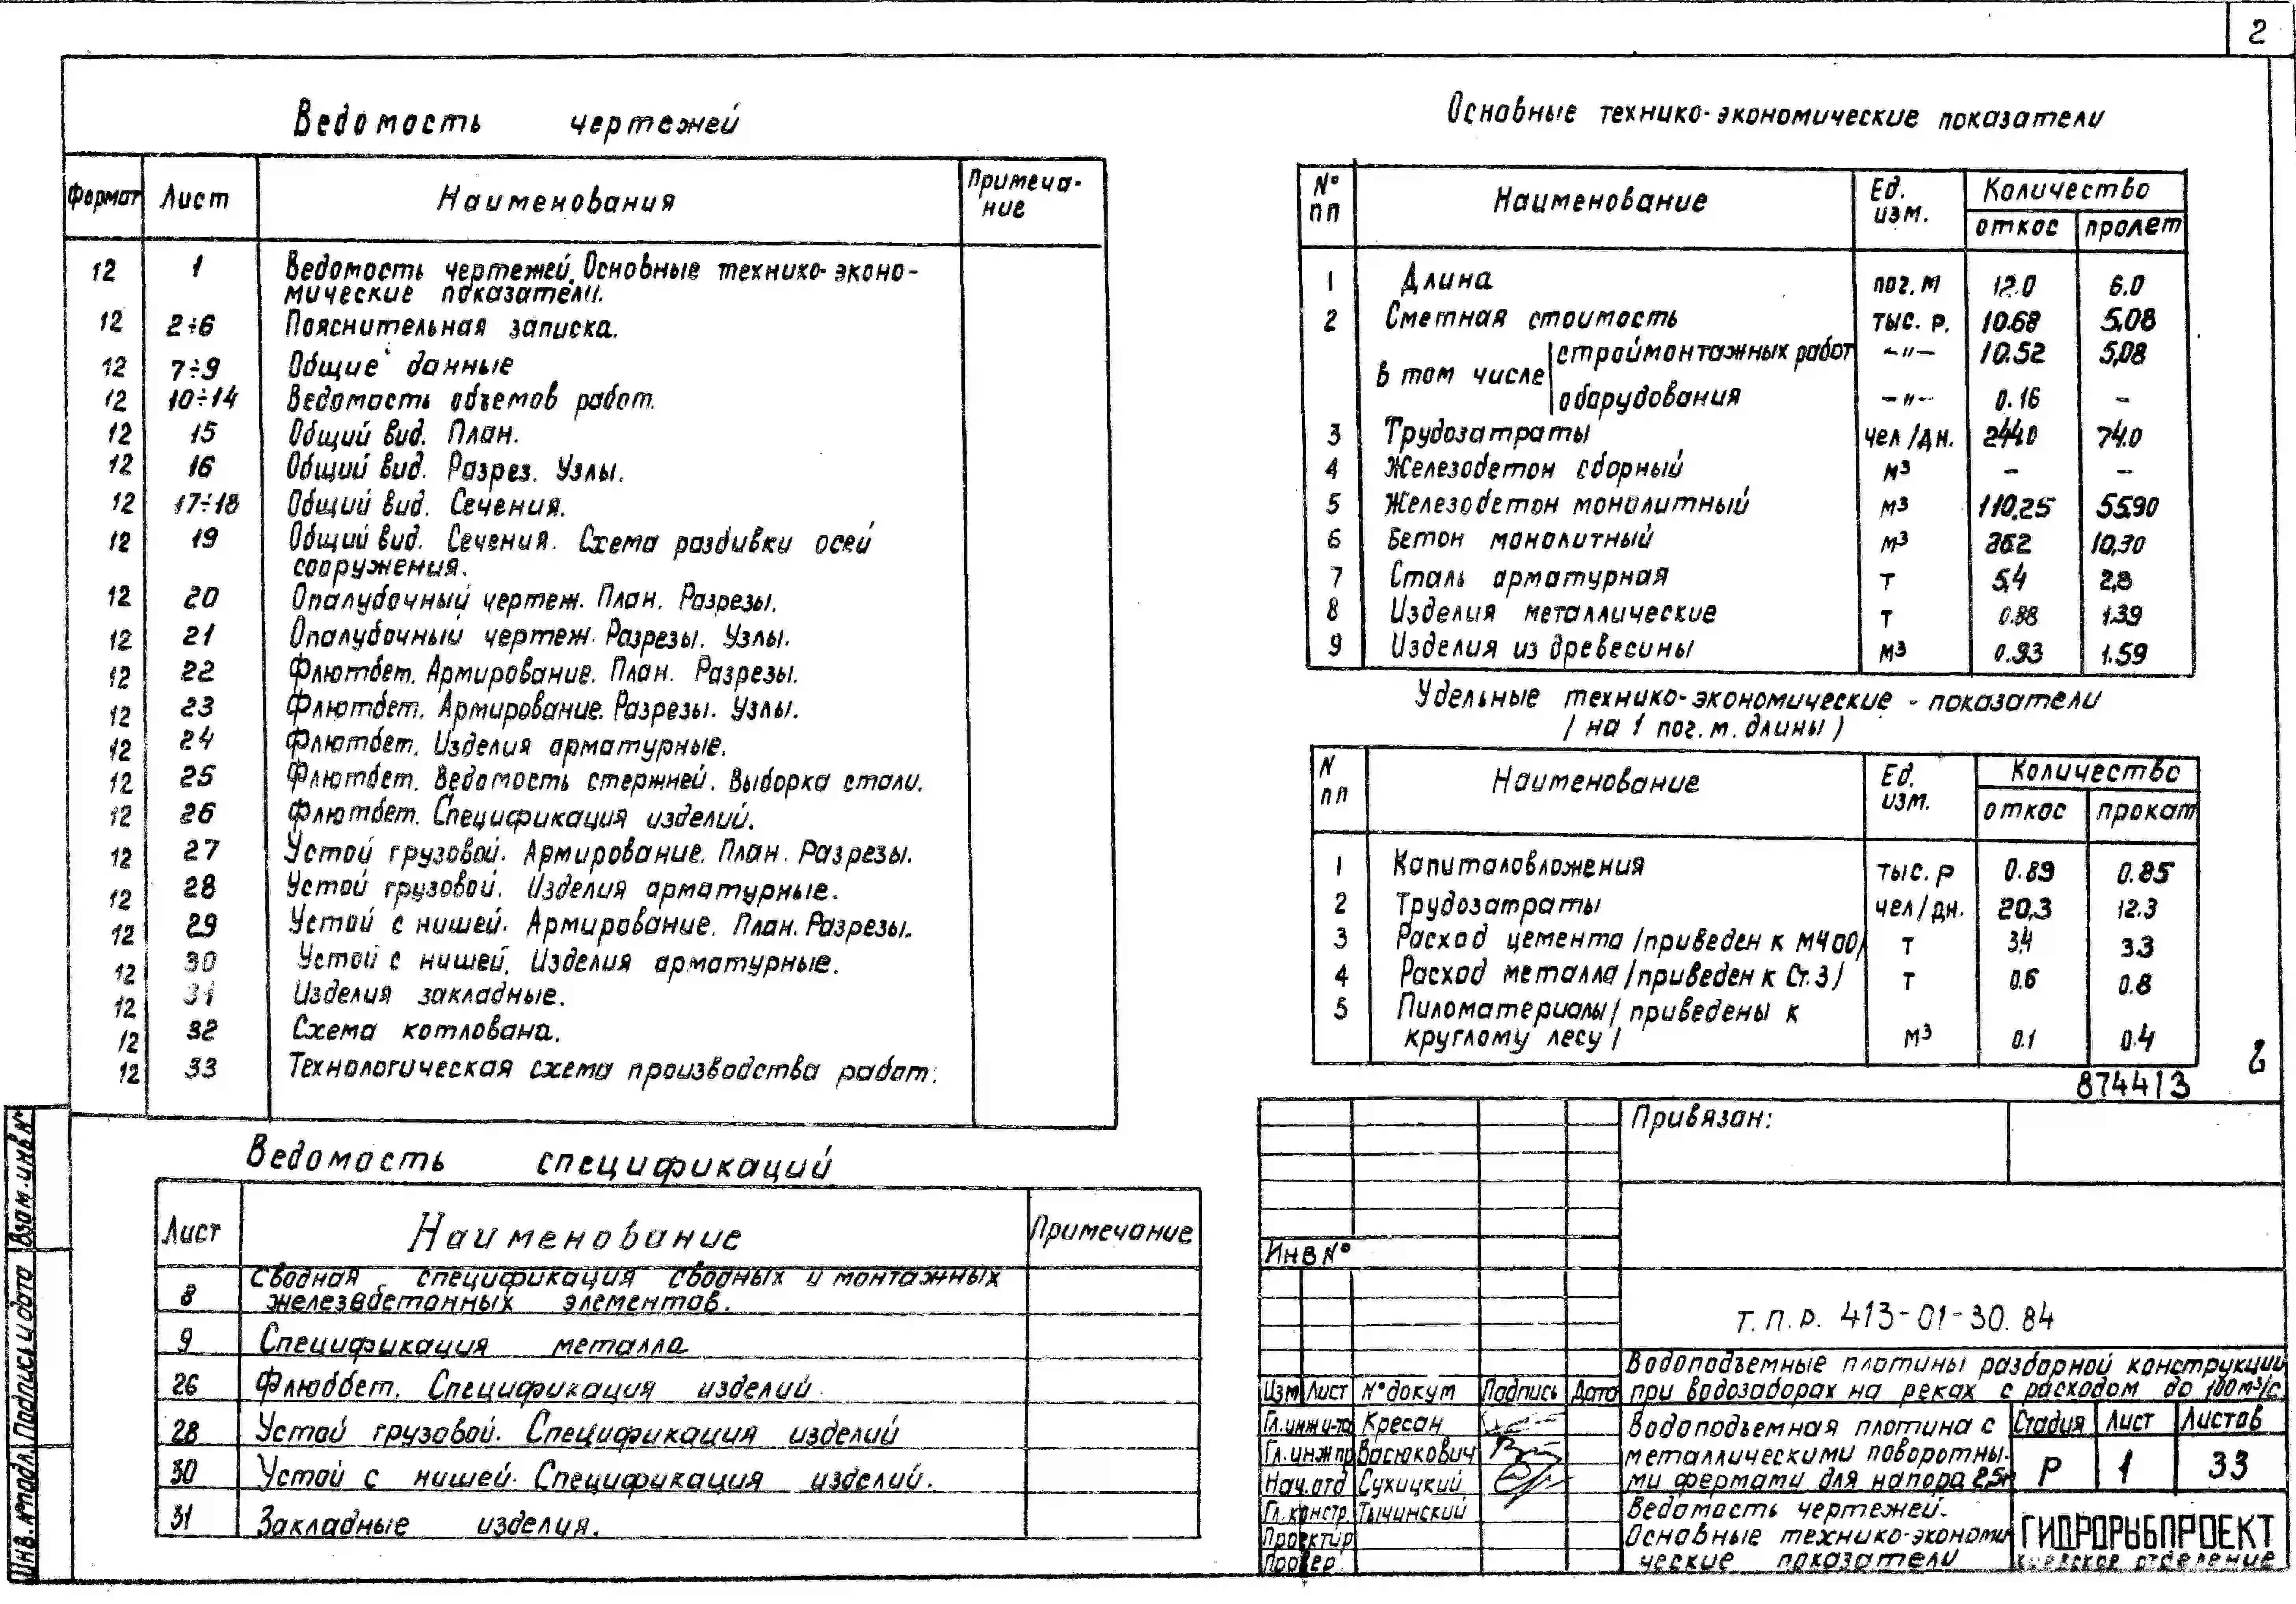 2
Ведомость чертежей
Формат Лист Наименования Примеча-
ние
12 1 Ведомость чертежей. Основные технико-эконо-
мические показатели.
12 2÷6 Пояснительная записка.
12 7÷9 Общие данные
12 10÷14 Ведомость объемов работ.
12 15 Общий вид. План.
12 16 Общий вид. Разрез. Узлы.
12 17÷18 Общий вид. Сечения.
12 19 Общий вид. Сечения. Схема разбивки осей
сооружения.
12 20 Опалубочный чертеж. План. Разрезы.
12 21 Опалубочный чертеж. Разрезы. Узлы.
12 22 Флютбет. Армирование. План. Разрезы.
12 23 Флютбет. Армирование. Разрезы. Узлы.
12 24 Флютбет. Изделия арматурные.
12 25 Флютбет. Ведомость стержней. Выборка стали.
12 26 Флютбет. Спецификация изделий.
12 27 Устой грузовой. Армирование. План. Разрезы.
12 28 Устой грузовой. Изделия арматурные.
12 29 Устой с нишей. Армирование. План. Разрезы.
12 30 Устой с нишей. Изделия арматурные.
12 31 Изделия закладные.
12 32 Схема котлована.
12 33 Технологическая схема производства работ.
Ведомость спецификаций
Лист Наименование Примечание
8 Сводная спецификация сводных и монтажных
железобетонных элементов.
9 Спецификация металла
26 Флюбет. Спецификация изделий.
28 Устой грузовой. Спецификация изделий
30 Устой с нишей. Спецификация изделий.
31 Закладные изделия.
Основные технико-экономические показатели
№ пп Наименование Ед. изм. Количество
откос пролет
1 Длина пог.м 12.0 6.0
2 Сметная стоимость тыс. р. 10.68 5,08
в том числе строймонтажных работ -"- 10.52 5,08
оборудования -"- 0.16 -
3 Трудозатраты чел/дн. 244.0 74.0
4 Железобетон сборный м³ - -
5 Железобетон монолитный м³ 110,25 55.90
6 Бетон монолитный м³ 10,30
7 Сталь арматурная т 5,4 2,8
8 Изделия металлические т 0.88 1.39
9 Изделия из древесины м³ 0.93 1.59
Удельные технико-экономические - показатели
/ на 1 пог.м. длины /
N пп Наименование Ед. изм. Количество
откос прокат
1 Капиталовложения тыс. р 0.89 0.85
2 Трудозатраты чел/дн. 20,3 12.3
3 Расход цемента /приведен к М400/ т 3.4 3.3
4 Расход металла /приведен к Ст.3/ т 0.6 0.8
5 Пиломатериалы / приведены к
круглому лесу / м³ 0.1 0.4
874413
2
Привязан:
Инв №
Т.П.Р. 413-01-30.84
Водоподъемные плотины разборной конструкции
при водозаборах на реках с расходом до 100м³/с
Изм Лист № докум Подпись Дата
Гл.инж и-та Кресан
Гл.инж пр Васюкович
Нач.отд Сухицкий
Гл.констр. Тычинский
Проектир
Провер.
Водоподъемная плотина с
металлическими поворотны-
ми фермами для напора 2,5м
Стадия Лист Листов
Р 1 33
Ведомость чертежей.
Основные технико-экономи
ческие показатели
ГИПРОРЫБПРОЕКТ
Киевское отделение
Взам.инв.№
Подпись и дата
Инв.№подл.